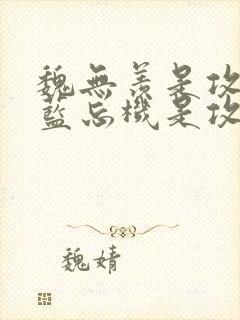 魏無羨是攻
藍忘機是攻
魏婧